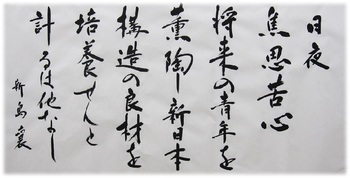 日夜
焦思苦心
将来の青年を
薫陶し新日本
構造の良材を
培養せんと
計るは他なし
新島襄